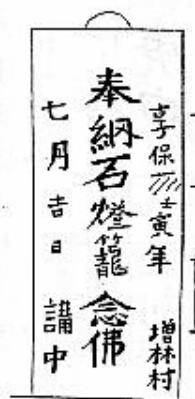 享保壬寅年 増林村
奉綱石燈籠 念佛
七月吉日 講中